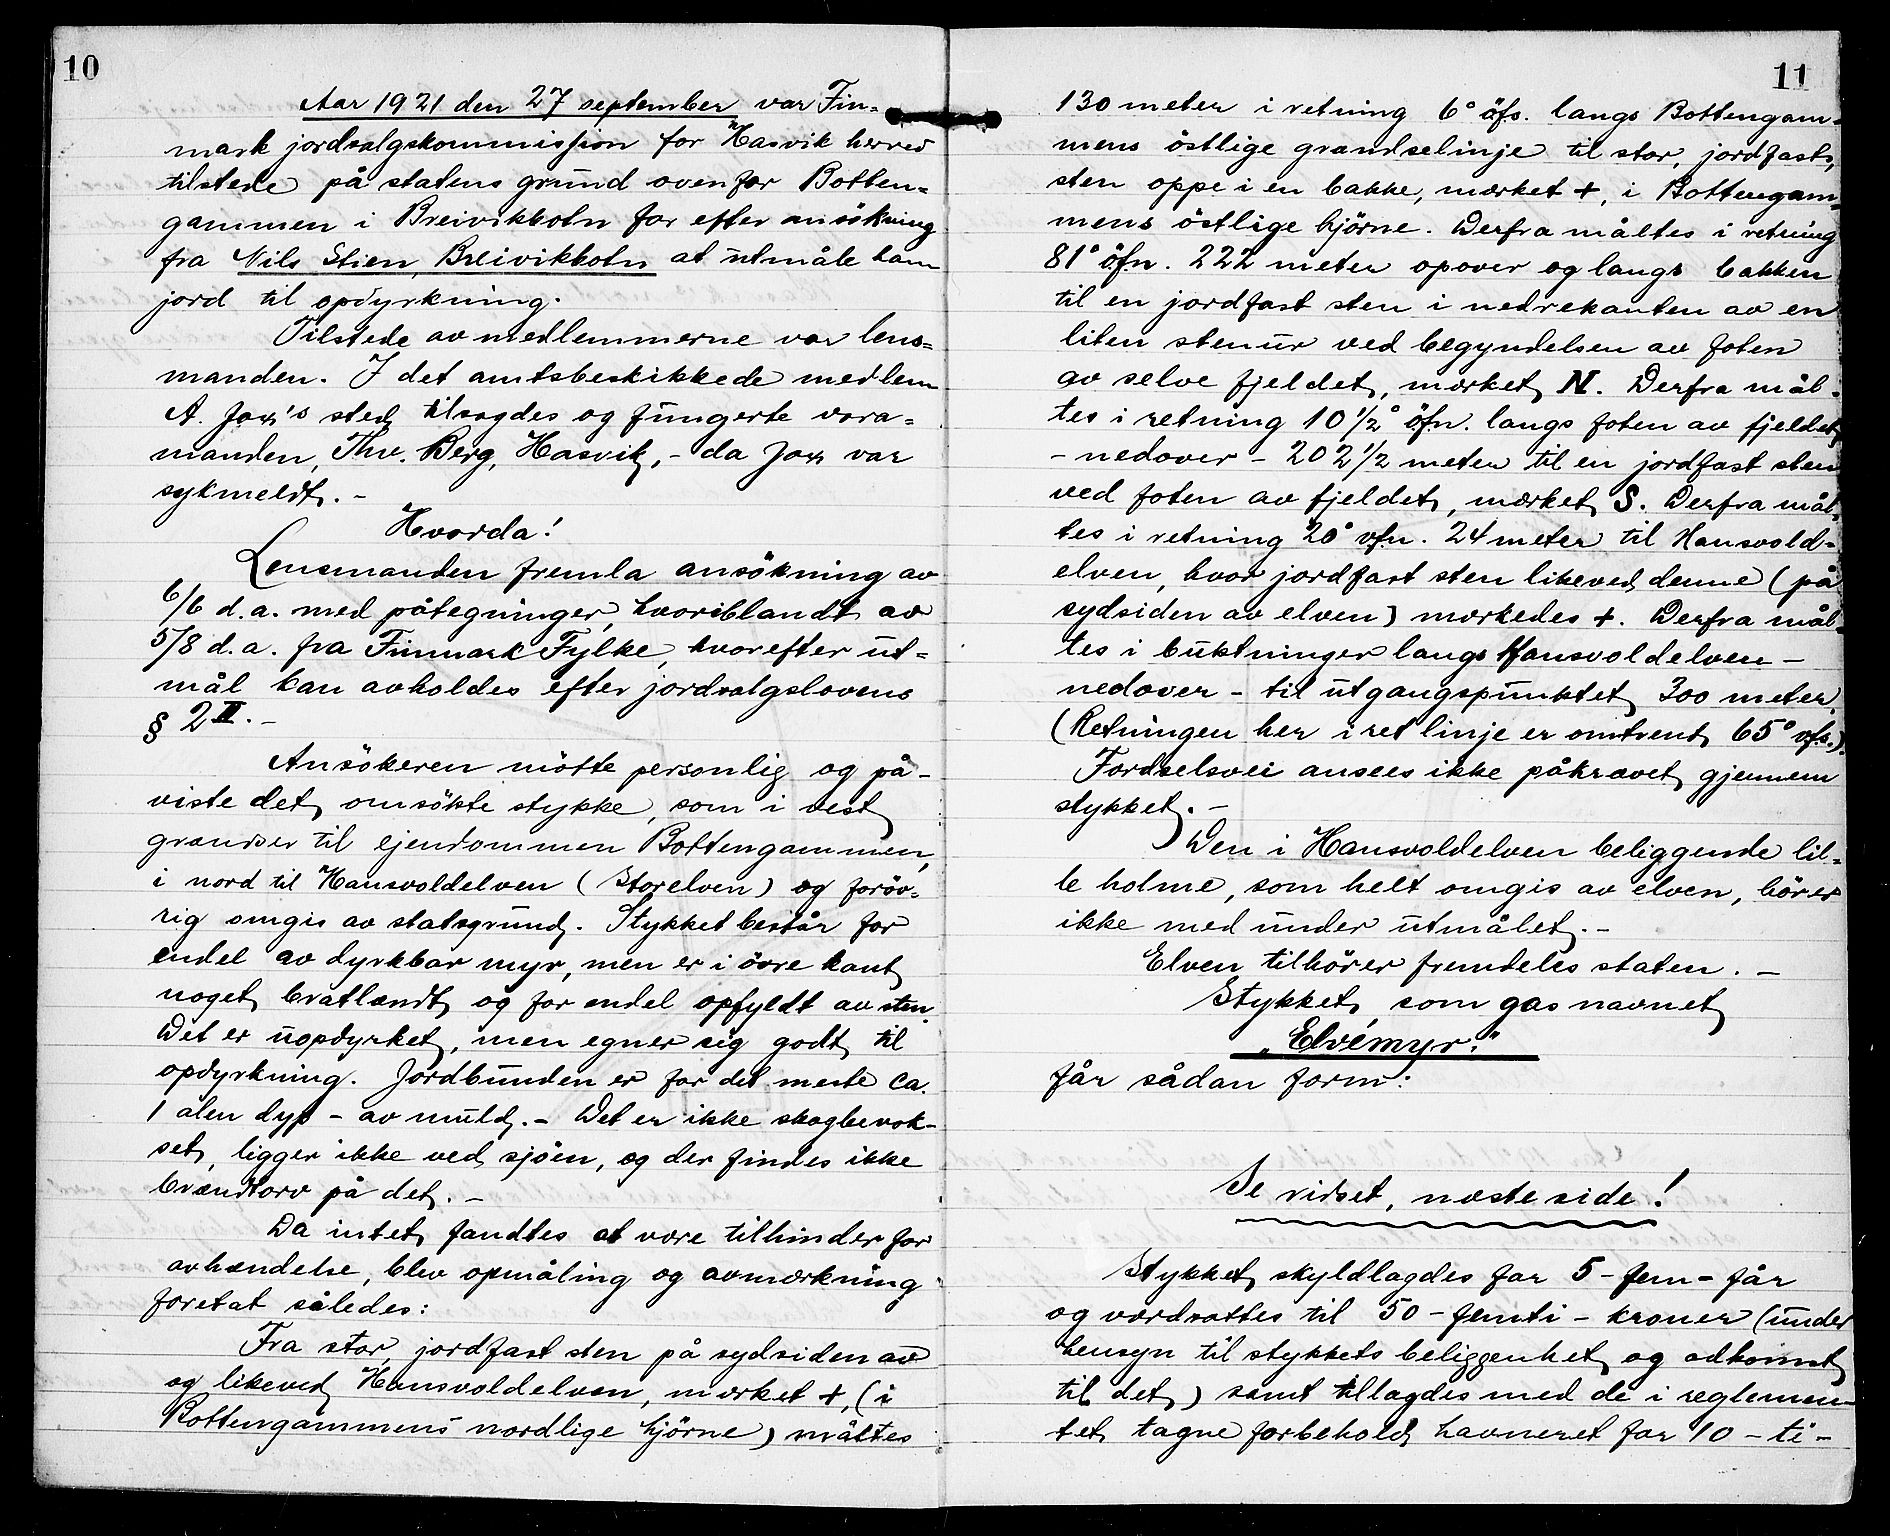 10
Aar 1921 den 27 september var Fin-
mark jordsalgskommission for Hasvik herred
tilstede på statens grund ovenfor Botten-
gammen i Breivikbotn for efter ansökning
fra Nils Stien, Breivikbotn at utmåle ham
jord til opdyrkning.
Tilstede av medlemmerne var lens-
manden. I det amtsbeskikkede medlem
A. Jox's sted tilsagdes og fungerte vara-
manden, Thv. Berg, Hasvik, - da Jox var
sykmeldt. -
Hvorda!
Lensmanden fremla ansökning av
6/6 d.a. med påtegninger, hvoriblandt av
5/8 d.a. fra Finmark Fylke, hvorefter ut-
mål kan avholdes efter jordsalgslovens
§ 2 II. -
Ansökeren mötte personlig og på-
viste det omsökte stykke, som i vest
grændser til ejendommen Bottengammen,
i nord til Hansvoldelven (Storelven) og foröv-
rig omgis av statsgrund. Stykket består for
endel av dyrkbar myr, men er i övre kant
noget bratlændt og for endel opfyldt av sten.
Det er uopdyrket, men egner sig godt til
opdyrkning. Jordbunden er for det meste ca.
1 alen dyp - av muld. - Det er ikke skogbevok-
set, ligger ikke ved sjöen, og der findes ikke
brændtorv på det. -
Da intet fandtes at være tilhinder for
avhændelse, blev opmåling og avmærkning
foretat således:
Fra stor, jordfast sten på sydsiden av
og likeved Hansvoldelven, mærket +, (i
Bottengammens nordlige hjörne) måltes
11
130 meter i retning 6° öfs. langs Bottengam-
mens östlige grændselinje til stor, jordfast,
sten oppe i en bakke, mærket +, i Bottengam-
mens östlige hjörne. Derfra måltes i retning
81° öfn. 222 meter opover og langs bakken
til en jordfast sten i nedrekanten av en
liten stenur ved begyndelsen av foten
av selve fjeldet, mærket N. Derfra mål-
tes i retning 10 1/2° öfn. langs foten av fjeldet
- nedover - 202 1/2 meter til en jordfast sten
ved foten av fjeldet, mærket S. Derfra mål-
tes i retning 20° vfn. 24 meter til Hansvold-
elven, hvor jordfast sten likeved denne (på
sydsiden av elven) mærkedes +. Derfra mål-
tes i buktninger langs Hansvoldelven -
nedover - til utgangspunktet 300 meter.
(Retningen her i ret linje er omtrent 65° vfs.).
Færdselsvei ansees ikke påkrævet gjennem
stykket. -
Den i Hansvoldelven beliggende lil-
le holme, som helt omgis av elven, hörer
ikke med under utmålet. -
Elven tilhörer fremdeles staten. -
Stykket, som gas navnet
"Elvemyr."
får sådan form:
Se risset, næste side!
Stykket skyldlagdes for 5 - fem - får
og værdsattes til 50 - femti - kroner (under
hensyn til stykkets beliggenhet og adkomst
til det) samt tillagdes med de i reglemen-
tet tagne forbehold havneret for 10 - ti -